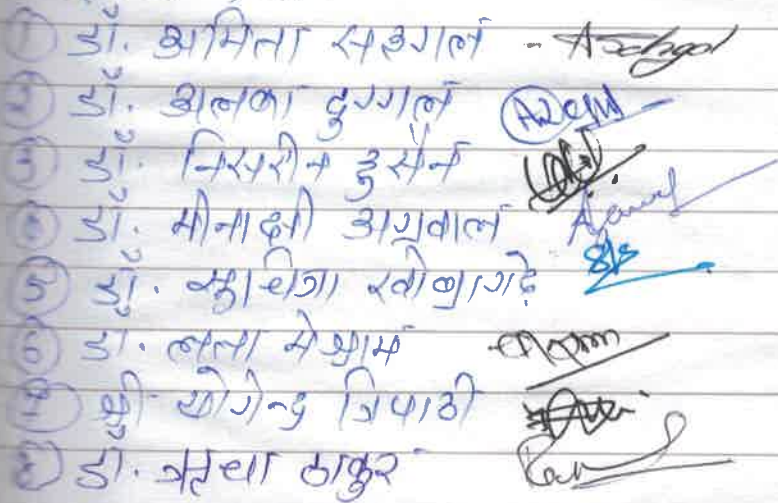 ① डॉ. अमिता सहगल - ASehgal
② डॉ. अलका दुग्गल
③ डॉ. निसरीन हुसैन
④ डॉ. मीनाक्षी अग्रवाल
⑤ डॉ. सुचित्रा खोब्रागडे
⑥ डॉ. लता मेश्राम
⑦ श्री योगेन्द्र त्रिपाठी
⑧ डॉ. ऋचा ठाकुर